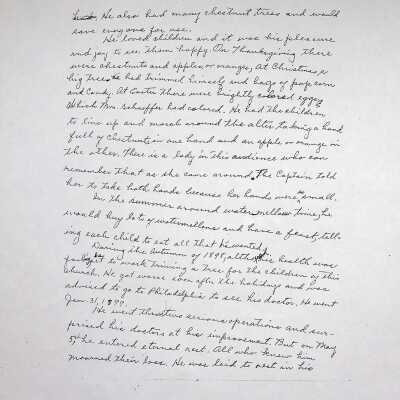 He also had many chestnut trees and would
save everyone for use.
He loved children and it was his pleasure
and joy to see them happy. On Thanksgiving there
were chestnuts and apples or oranges, At Christmas, a
big tree he had trimmed himself and bags of pop corn
and candy, At Easter there were brightly colored eggs
Which Mrs. Schaffer had colored. He had the children
to line up and march around the alter, taking a hand
full of chestnuts in one hand and an apple or orange in
the other. There is a lady in this audience who can
remember that as she came around, the Captain told
her to take both hands because her hands were so small.
In the summer around watermellow time, he
would buy lots of watermellons and have a feast, tell-
ing each child to eat all that he wanted.
During the autumn of 1898, altho his health was
he got to work triming a tree for the children of this
church. He got worse soon after the holidays and was
advised to go to Philadelphia to see his doctor. He went
Jan. 31, 1899.
He went thru two serious operations and sur-
prised his doctors at his improvement. But on May
5th he entered eternal rest. All who knew him
mourned their loss. He was laid to rest in his